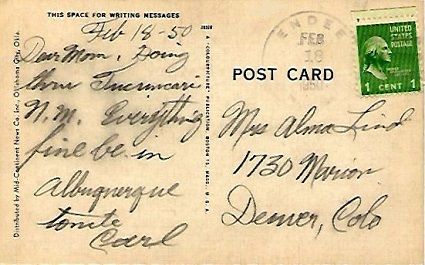 THIS SPACE FOR WRITING MESSAGES
Feb 18-50
Dear Mom, Going
thru Tucumcari
N.M. Everything
fine be in
Albuquerque
tonite
Carl
Distributed by Mid-Continent News Co. Inc., Oklahoma City, Okla.
A "COLOURPICTURE" PUBLICATION BOSTON 15, MASS., U.S.A.
ENDEE
FEB
18
1950
UNITED
STATES
POSTAGE
1 CENT 1
POST CARD
Mrs Alma Lind
1730 Marion
Denver, Colo